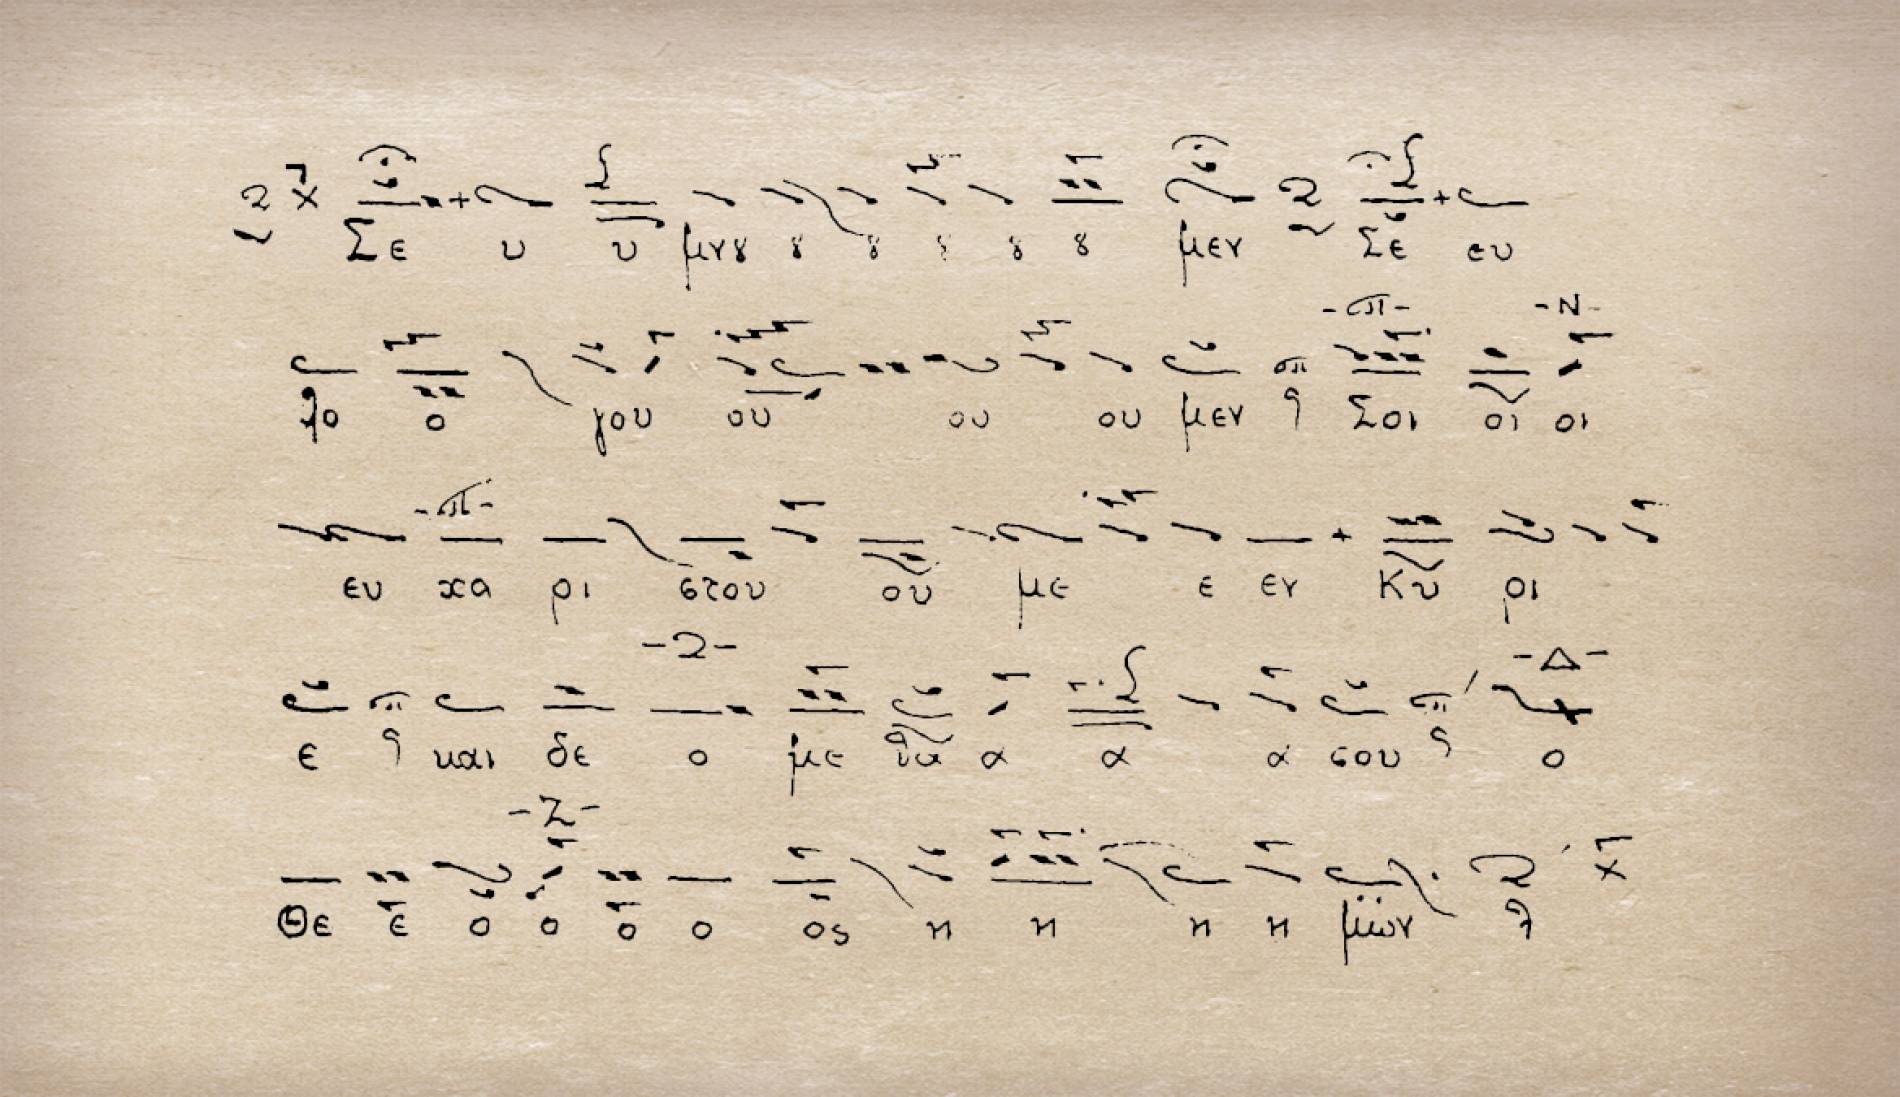 Σε υ υ μνȣ ȣ ȣ ȣ ȣ ȣ μεν Σε ευ
λο ο γου ου ου ου μεν Σοι οι οι
ευ χα ρι στου ου με ε εν Κυ ρι
ε και δε ο με θα α α α σου ο
Θε ε ο ο ο ο ος η η η η μων